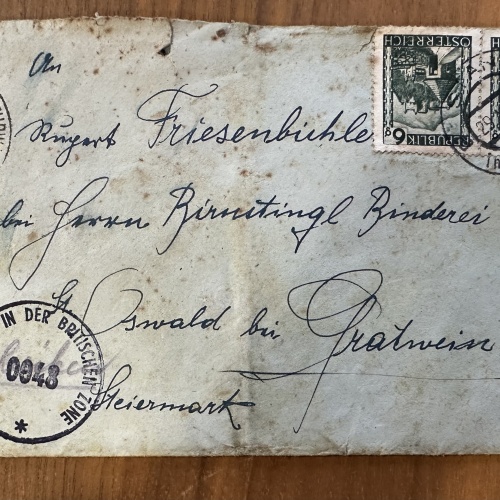 An
Rupert Friesenbichle
bei Herrn Birnstingl Binderei
St Oswald bei Gratwein
Steiermark
REPUBLIK ÖSTERREICH
6
IN DER BRITISCHEN ZONE
0048
*